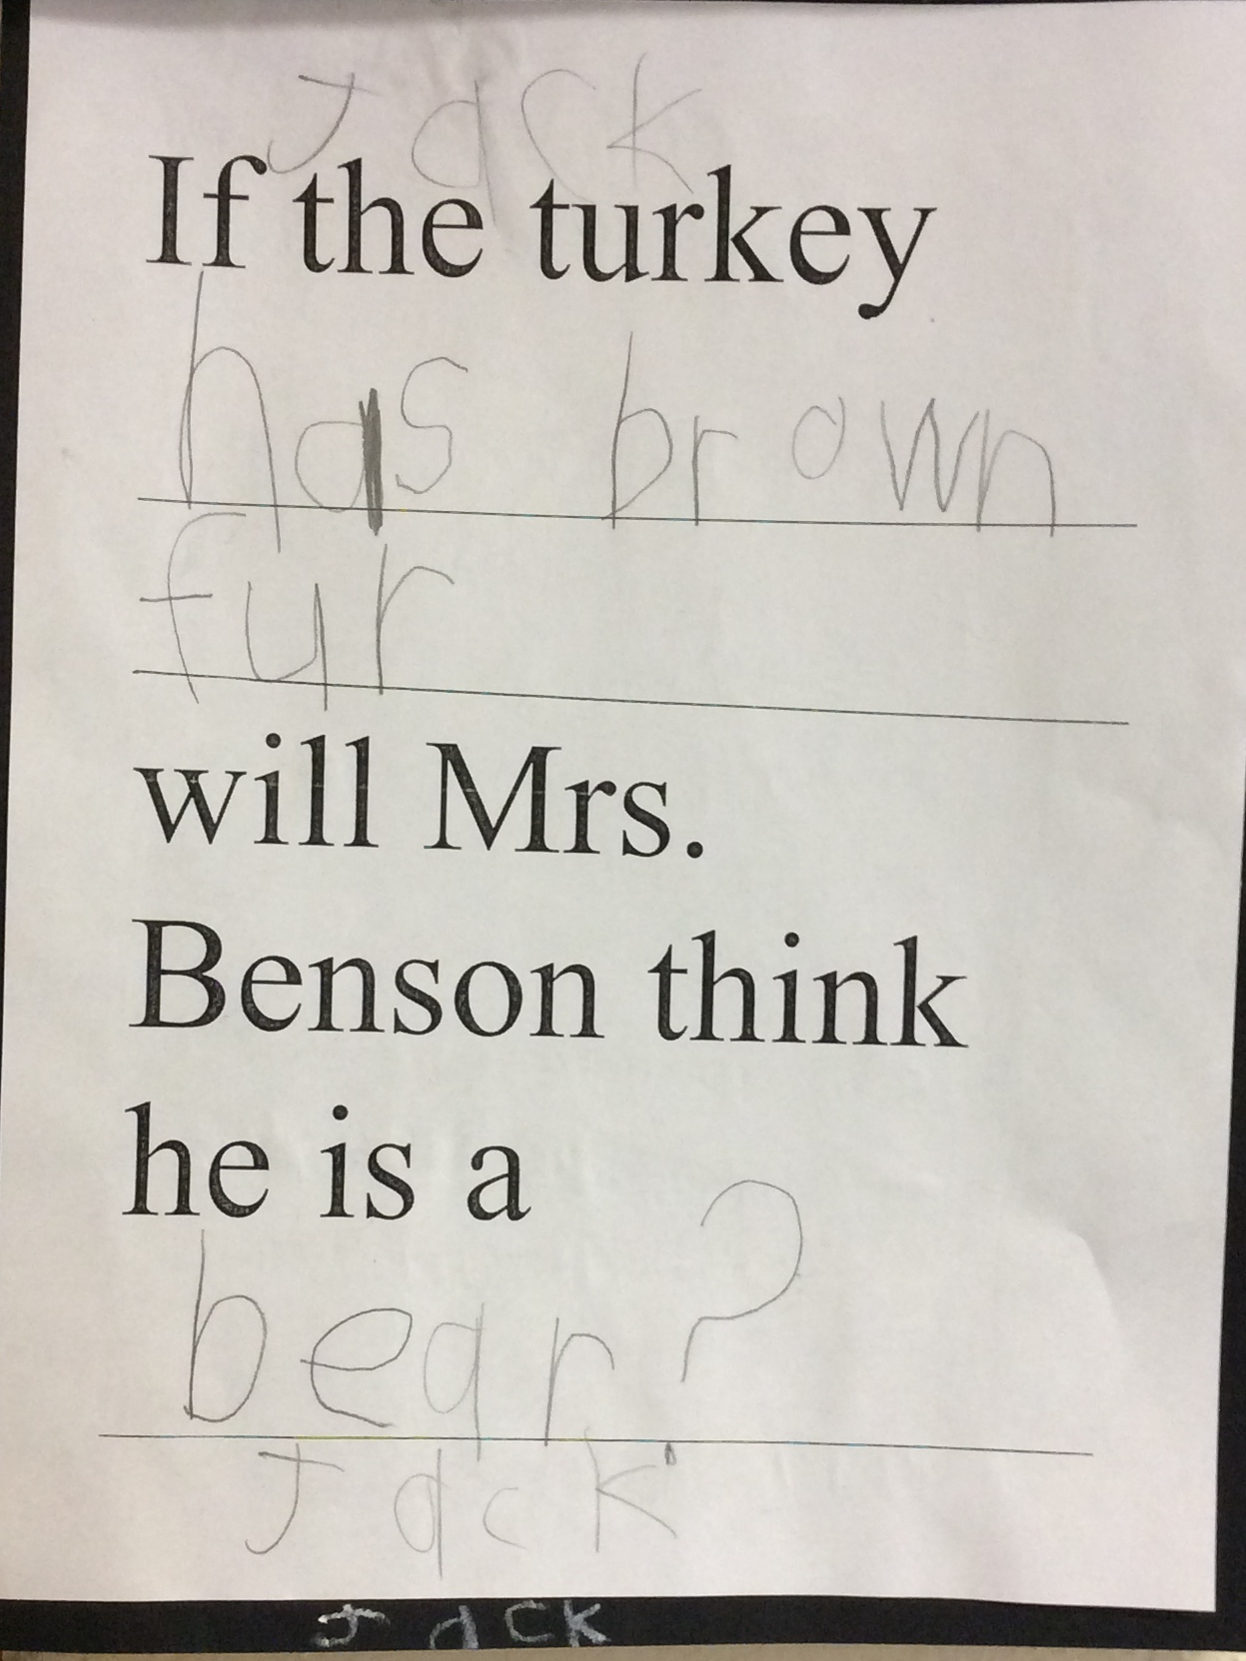 Jack
If the turkey
has brown
fur
will Mrs.
Benson think
he is a
bear?
Jack
Jack